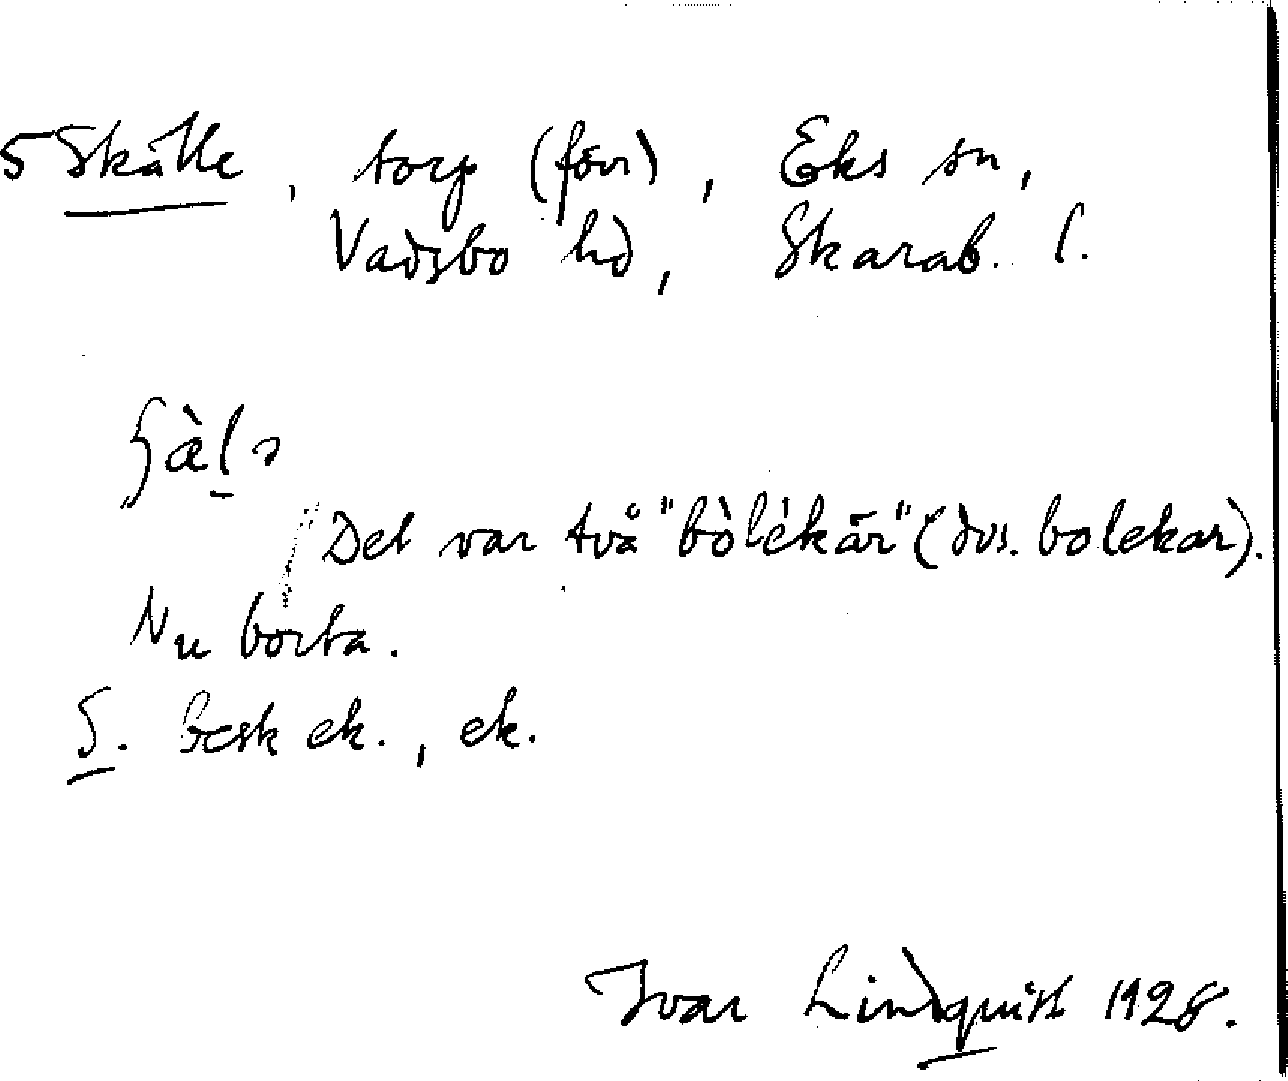 5 Skälle, torp (förr), Eks sn,
Vadsbo hd, Skarab. l.
Det var två "bòlékär" (dvs. bolekar).
Nu borta.
S. besk ek., ek.
Ivar Lindquist 1928.